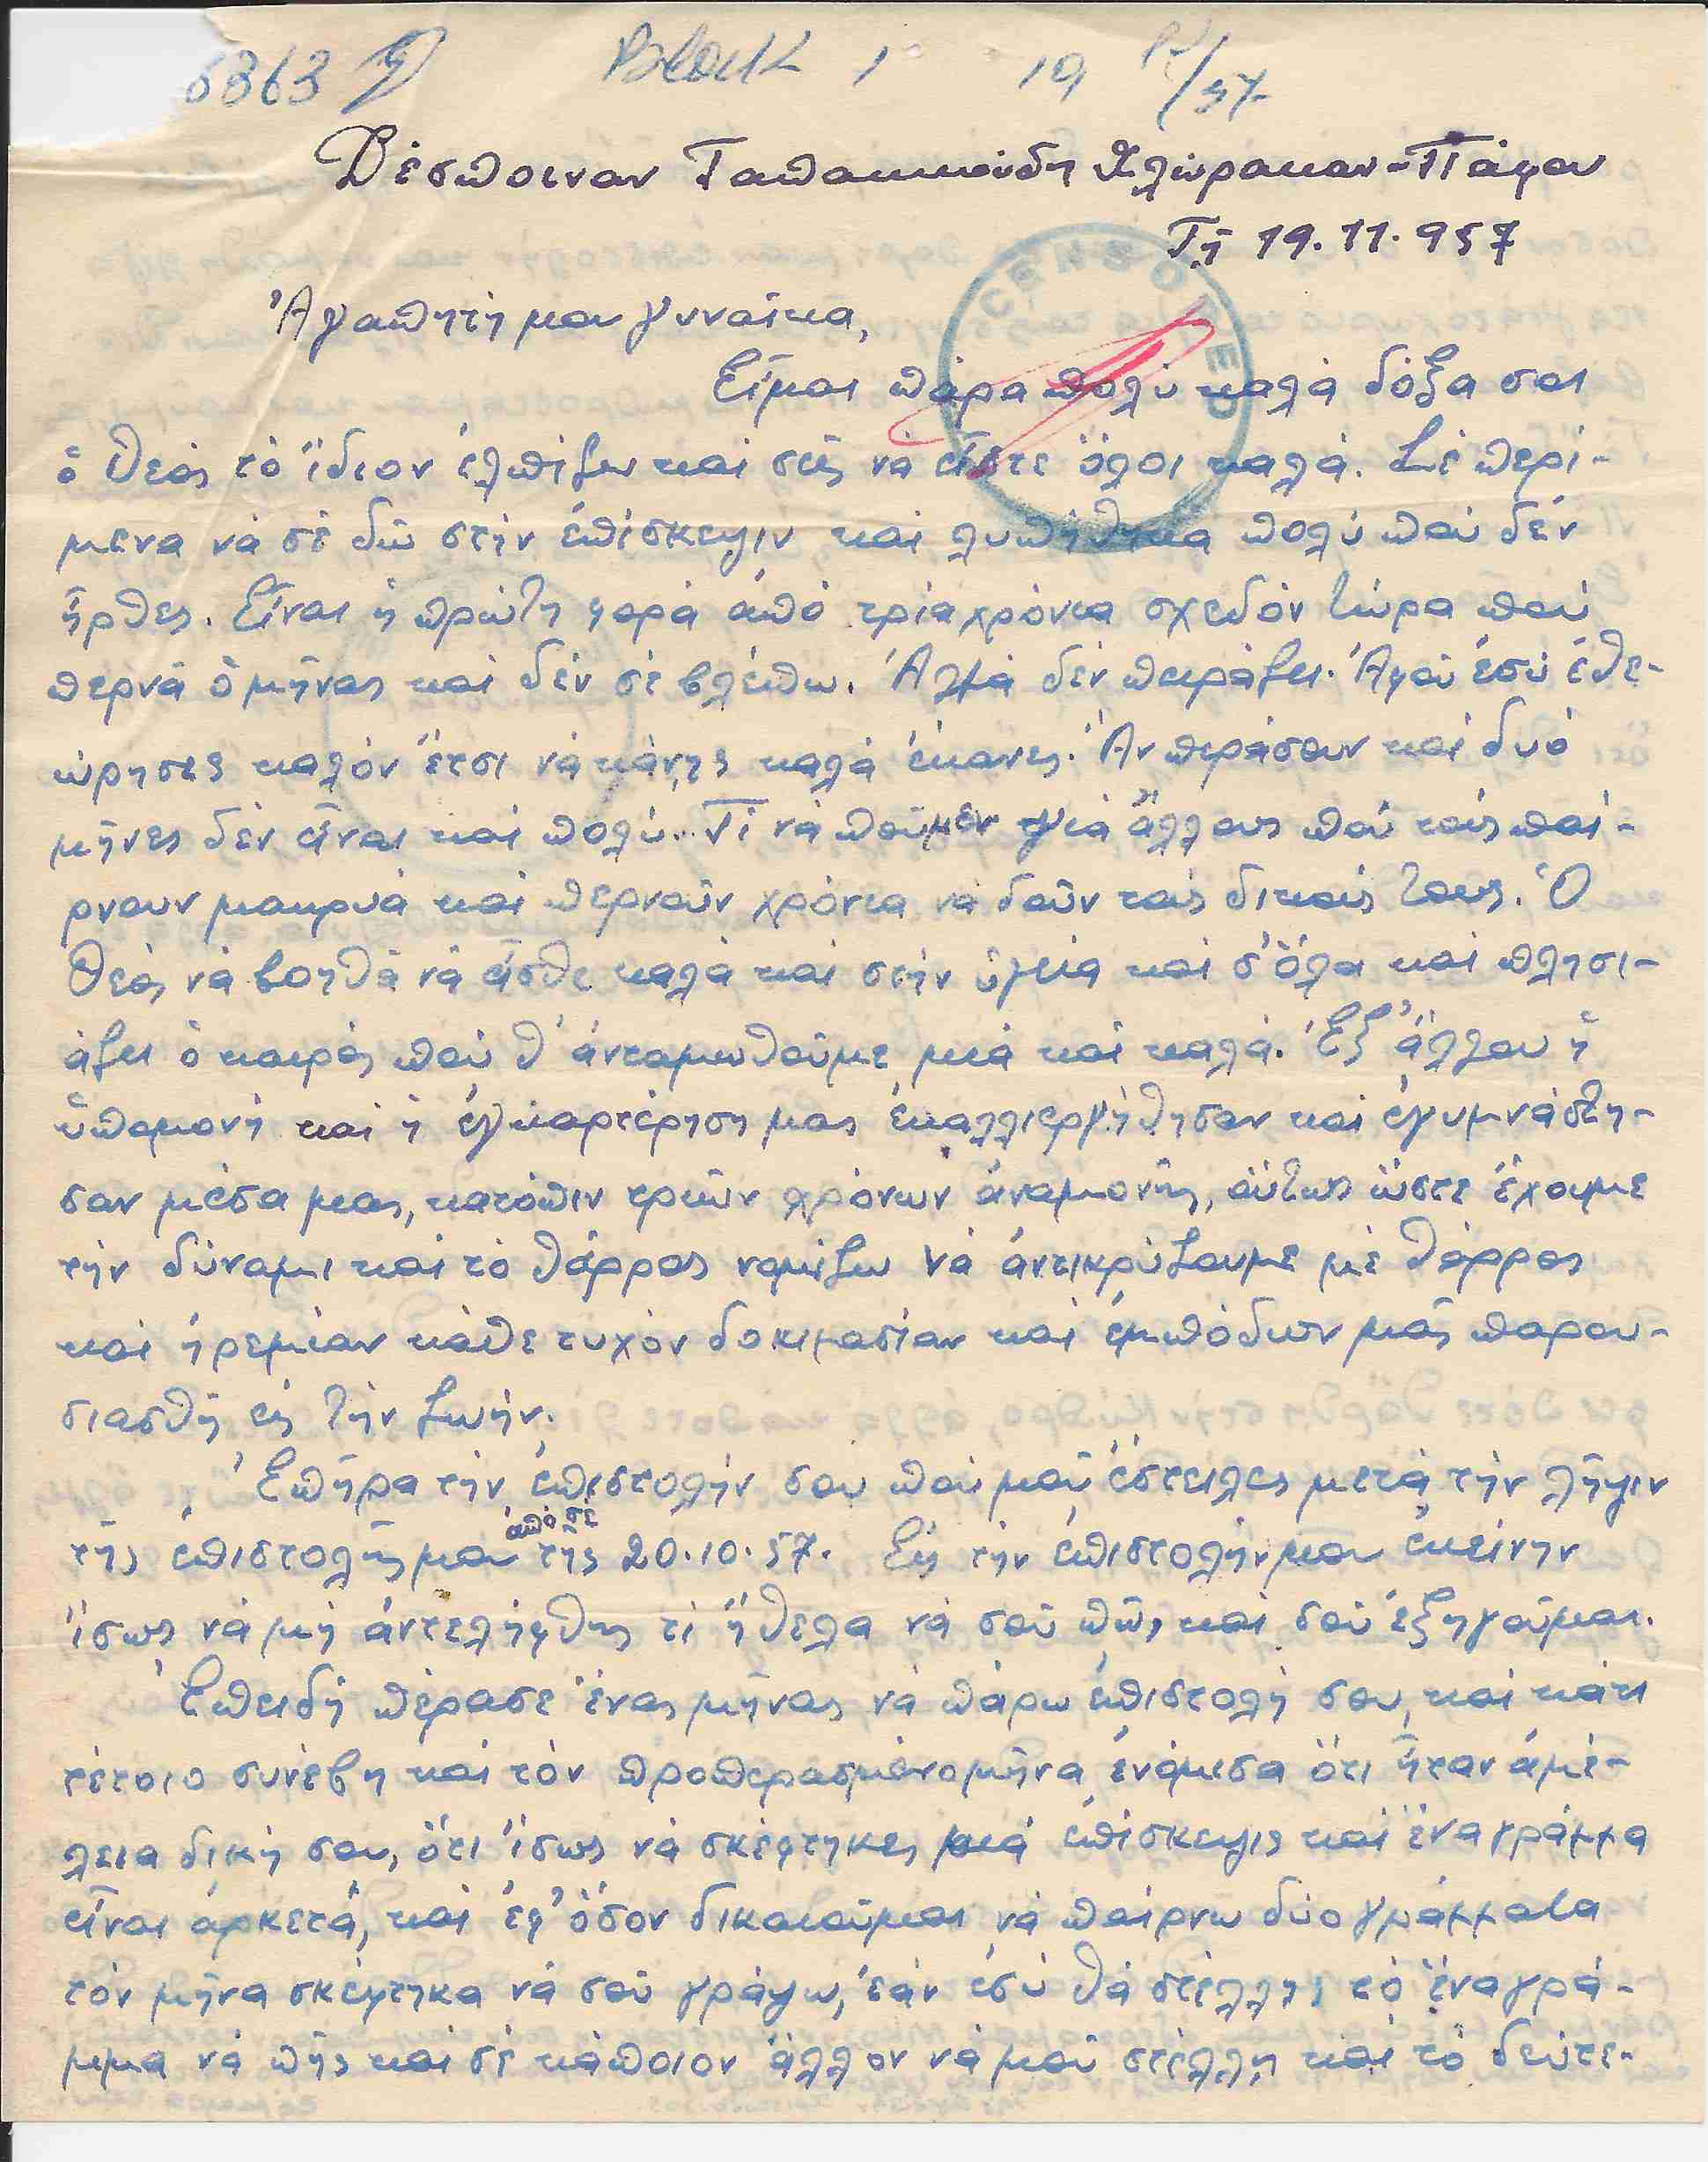 6363 Block 1 19 /57
Δέσποιναν Ταπακκούδη Χλώρακαν-Πάφου
Τῇ 19.11.957
CENSORED
Ἀγαπητή μου γυναῖκα,
Εἶμαι πάρα πολύ καλά δόξα σοι
ὁ Θεός τό ἴδιον ἐλπίζω καί σεῖς νά εἶστε ὅλοι καλά. Σέ περί-
μενα νά σέ δῶ στήν ἐπίσκεψιν καί λυπήθηκα πολύ πού δέν
ἦρθες. Εἶναι ἡ πρώτη φορά ἀπό τρία χρόνια σχεδόν τώρα πού
περνᾶ ὁ μῆνας καί δέν σέ βλέπω. Ἀλλά δέν πειράζει. Ἀφοῦ ἐσύ ἐθε-
ώρησες καλόν ἔτσι νά κάνῃς καλά ἔκανες. Ἄν περάσουν καί δυό
μῆνες δέν εἶναι καί πολύ. Τί νά ποῦμεν γιά ἄλλους πού τούς παί-
ρνουν μακρυά καί περνοῦν χρόνια νά δοῦν τούς δικούς τους. Ὁ
Θεός νά βοηθᾶ νά εἶσθε καλά καί στήν ὑγεία καί σ' ὅλα καί πλησι-
άζει ὁ καιρός πού θ' ἀνταμωθοῦμε μιά καί καλά. Ἐξ' ἄλλου ἡ
ὑπομονή καί ἡ ἐγκαρτέρηση μας ἐκαλλιεργήθησαν καί ἐγυμνάστη-
σαν μέσα μας, κατόπιν τριῶν χρόνων ἀναμονῆς, οὕτως ὥστε ἔχουμε
τήν δύναμι καί τό θάρρος νομίζω νά ἀντικρύζουμε μέ θάρρος
καί ἠρεμίαν κάθε τυχόν δοκιμασίαν καί ἐμπόδιον μᾶς παρου-
σιασθῆ εἰς τήν ζωήν.
Ἐπῆρα τήν ἐπιστολήν σου πού μοῦ ἔστειλες μετά τήν λῆψιν
ἀπό σέ
τῆς ἐπιστολῆς μου τῆς 20.10.57. Εἰς τήν ἐπιστολήν μου ἐκείνην
ἴσως νά μή ἀντελήφθης τί ἤθελα νά σοῦ πῶ, καί σοῦ ἐξηγοῦμαι.
Ἐπειδή πέρασε ἕνας μῆνας νά πάρω ἐπιστολή σου, καί κάτι
τέτοιο συνέβη καί τόν προπερασμένο μῆνα ἐνόμισα ὅτι ἦταν ἀμέ-
λεια δική σου, ὅτι ἴσως νά σκέφτηκες μιά ἐπίσκεψις καί ἕνα γράμμα
εἶναι ἀρκετά, καί ἐφ' ὅσον δικαιοῦμαι νά παίρνω δύο γράμματα
τόν μῆνα σκέφτηκα νά σοῦ γράψω, ἐάν ἐσύ θά στέλλῃς τό ἕνα γρά-
μμα νά πῆς καί σέ κάποιον ἄλλον νά μοῦ στέλλῃ καί τό δεύτε-